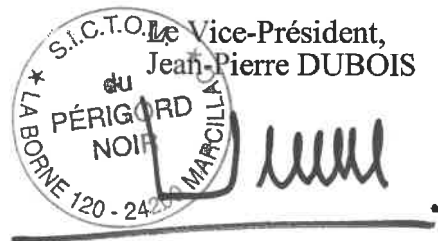 Le Vice-Président,
Jean-Pierre DUBOIS
S.I.C.T.O.M.
du
PÉRIGORD
NOIR
★ LABORNE 120 - 24200 MARCILLA